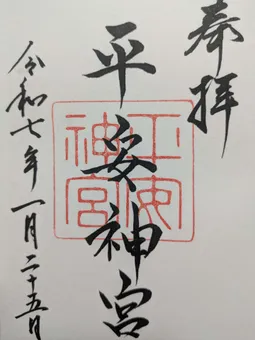 奉拝
平安神宮
平安
神宮
令和七年一月二十五日